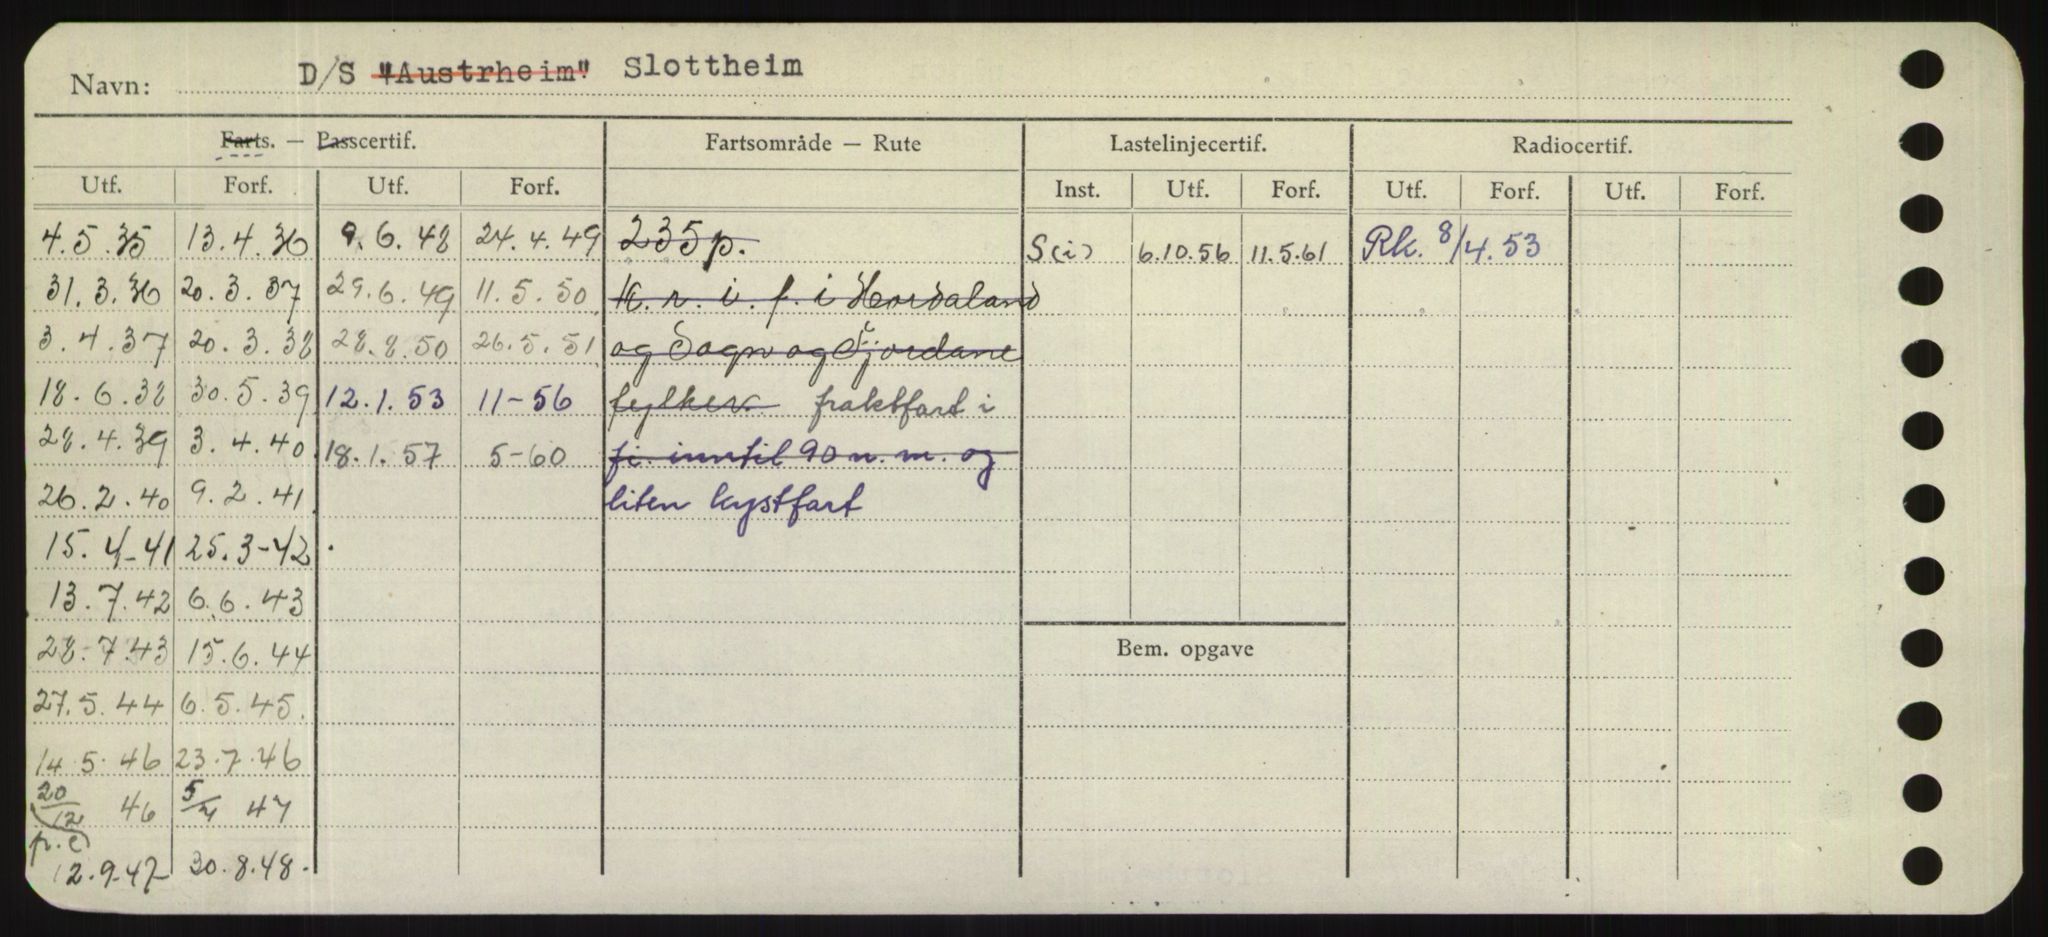 Navn: D/S "Austrheim" Slottheim
Farts. — Passcertif. Fartsområde — Rute Lastelinjecertif. Radiocertif.
Utf. Forf. Utf. Forf. Inst. Utf. Forf. Utf. Forf. Utf. Forf.
4.5.35 13.4.36 9.6.48 24.4.49 235 p. S(i) 6.10.56 11.5.61 Rk. 8/4.53
31.3.36 20.3.37 29.6.49 11.5.50 K. r. i. f. i Hordaland
3.4.37 20.3.38 28.8.50 26.5.51 og Sogn og Fjordane
18.6.38 30.5.39 12.1.53 11-56 fylker fraktfart i
28.4.39 3.4.40 18.1.57 5-60 fi. inntil 90 n. m. og
26.2.40 9.2.41 liten kystfart
15.4-41 25.3-42
13.7.42 6.6.43
28-7.43 15.6.44
Bem. opgave
27.5.44 6.5.45.
14.5.46 23.7.46
20/12 46 5/4 47
p.c
12.9-47 30.8.48.